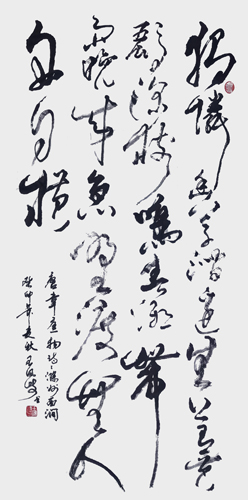 獨憐幽草澗邊生上有黃
鸝深樹鳴春潮帶
雨晚來急野渡無人
舟自橫
唐韋應物詩滁州西澗